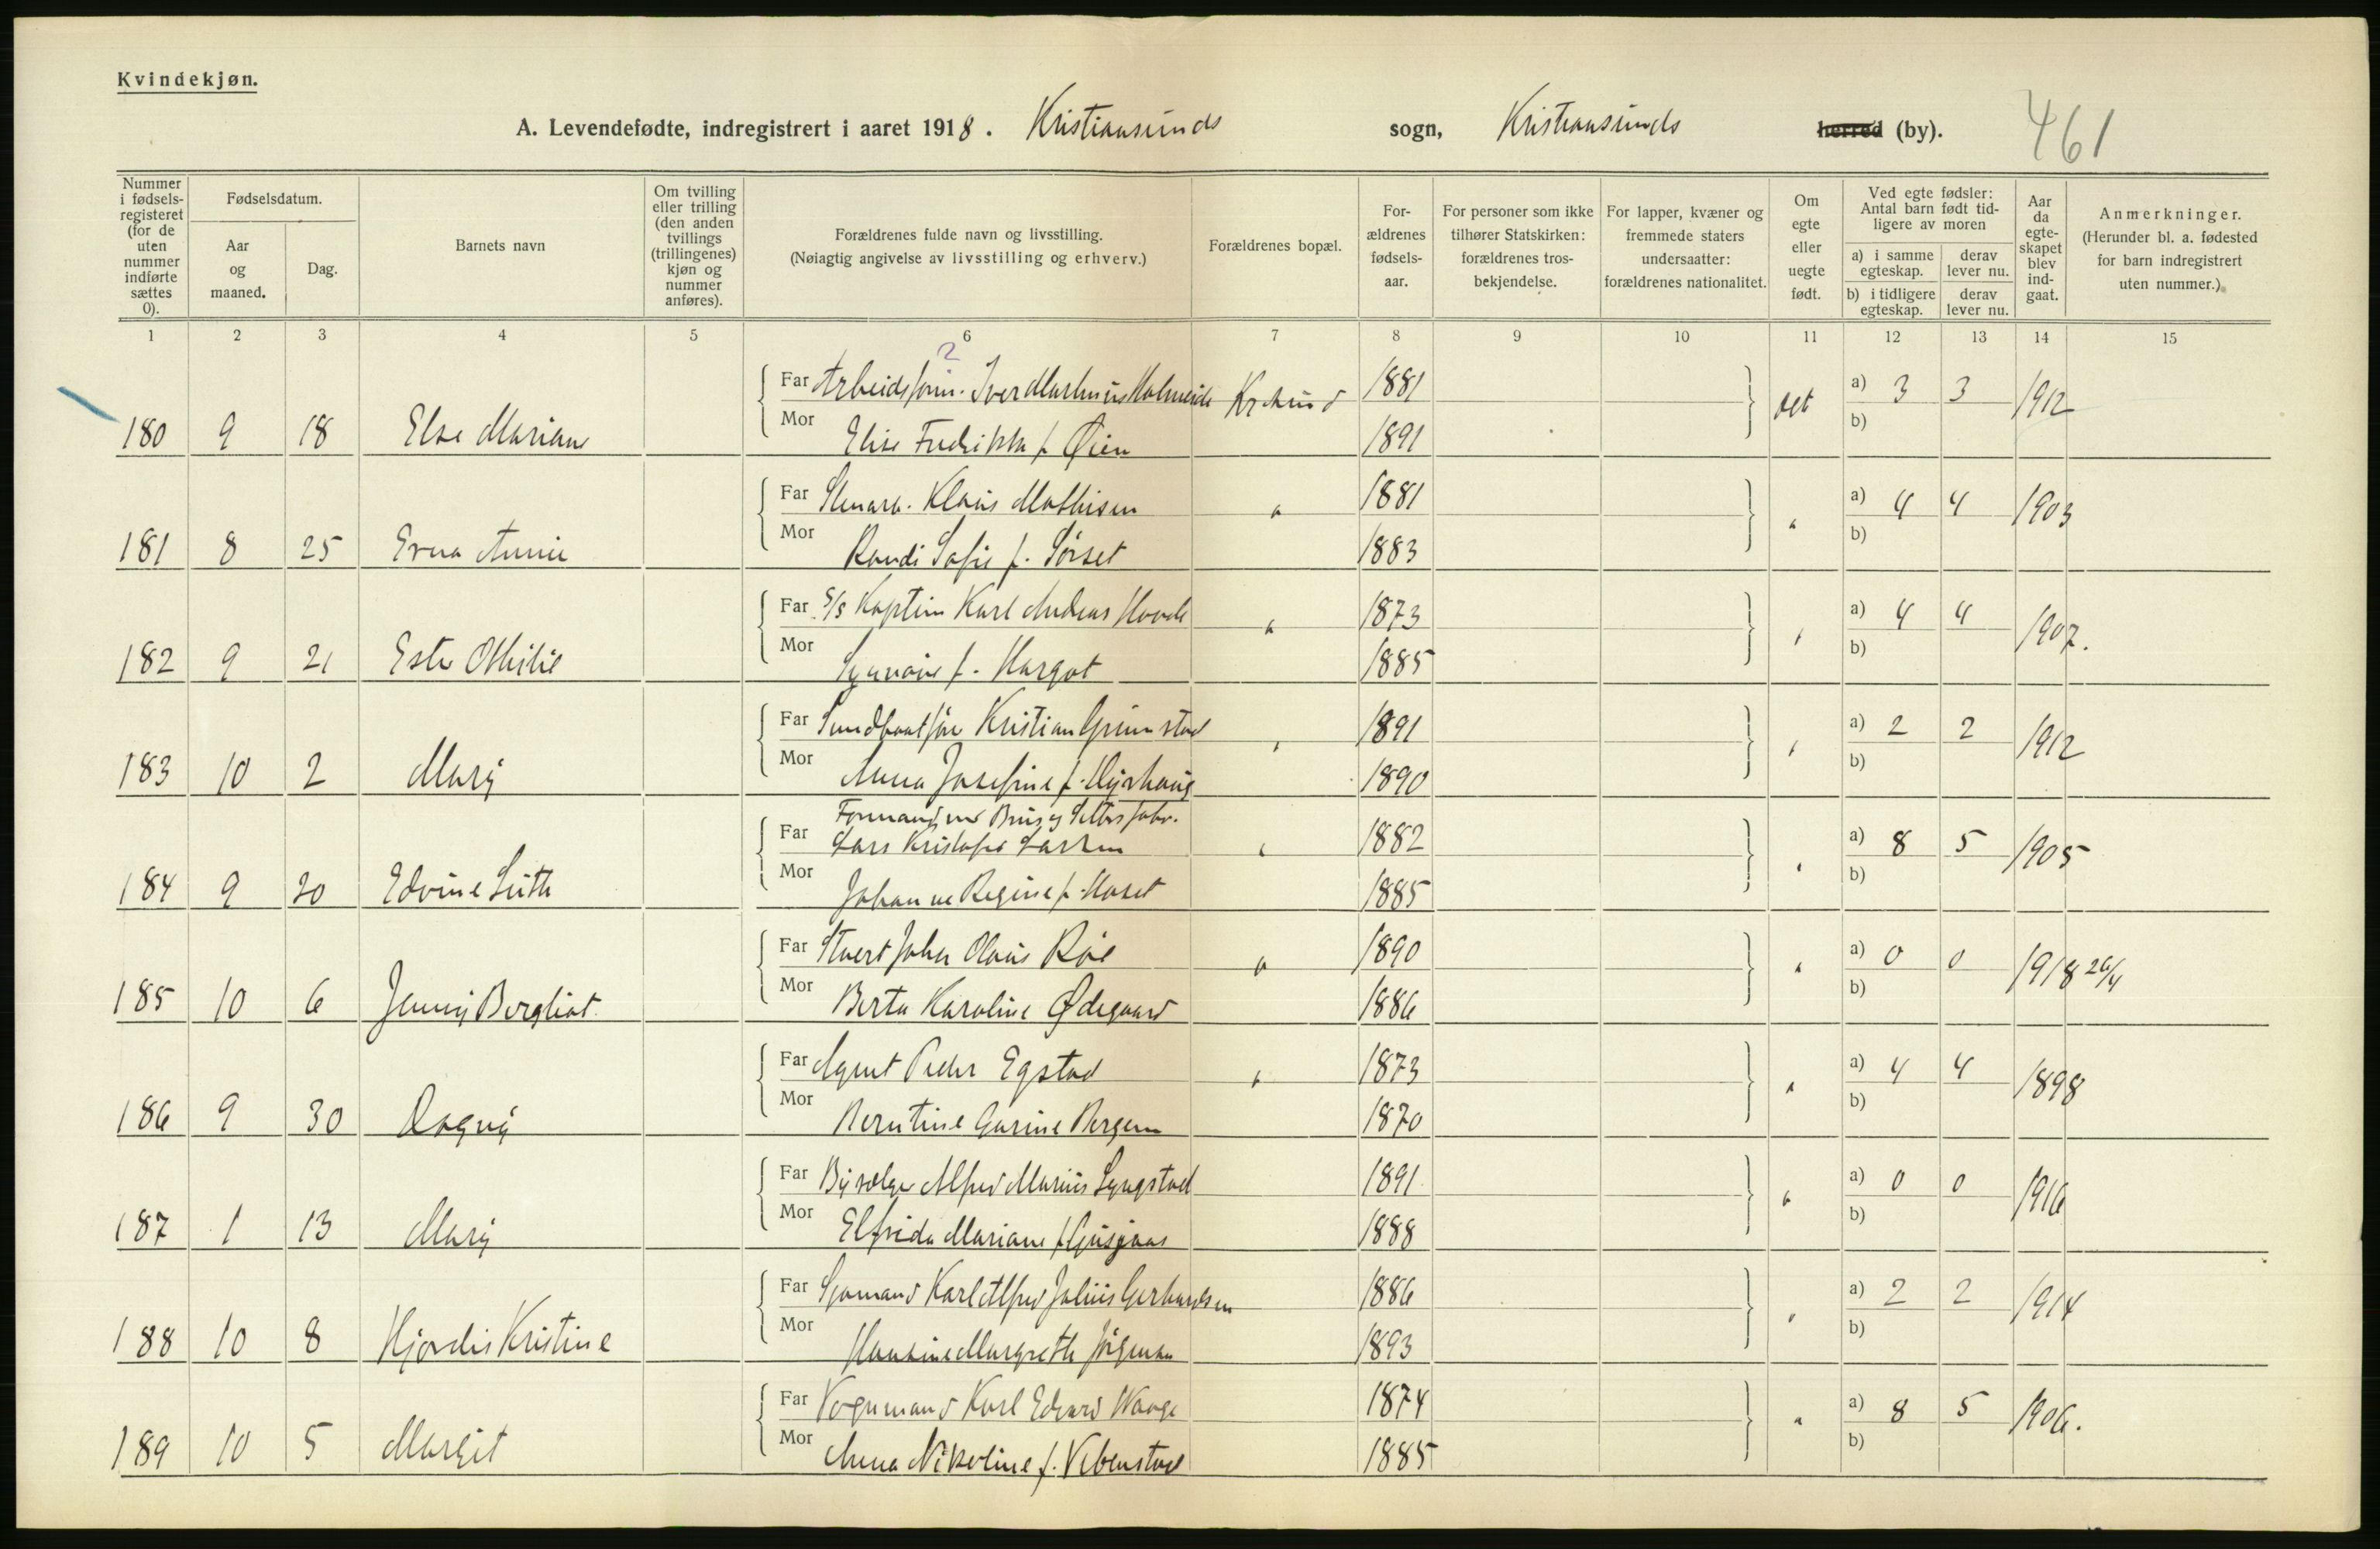 Kvindekjøn.
A. Levendefødte, indregistrert i aaret 1918. Kristiansunds sogn, Kristiansunds herred (by). 461
Nummer i fødselsregisteret (for de uten nummer indførte sættes 0).
Fødselsdatum.
Aar og maaned.
Dag.
Barnets navn
Om tvilling eller trilling (den anden tvillings (trillingenes) kjøn og nummer anføres).
Forældrenes fulde navn og livsstilling.
(Nøiagtig angivelse av livsstilling og erhverv.)
Forældrenes bopæl.
Forældrenes fødselsaar.
For personer som ikke tilhører Statskirken: forældrenes trosbekjendelse.
For lapper, kvæner og fremmede staters undersaatter: forældrenes nationalitet.
Om egte eller uegte født.
Ved egte fødsler: Antal barn født tidligere av moren
a) i samme egteskap. derav lever nu.
b) i tidligere egteskap. derav lever nu.
Aar da egteskapet blev indgaat.
Anmerkninger.
(Herunder bl. a. fødested for barn indregistrert uten nummer.)
1 2 3 4 5 6 7 8 9 10 11 12 13 14 15
2
Far Arbeidsform. Iver Markus Holmeide Kr.sund 1881 a) 3 3 1912
180 9 18 Else Mariane Mor Elise Fredrikke f. Øien 1891 b)
Far Klaus Mathisen " 1881 " a) 4 4 1903
181 8 25 Erna Annie Mor Randi Sofie f. Sørset 1883 b)
Far S/S Kaptein Karl Andreas Hovde " 1873 " a) 4 4 1907.
182 9 21 Ester Othilie Mor f. Hargot 1885 b)
Far Sundbaatfør Kristian Grimstad " 1891 " a) 2 2 1912
183 10 2 Mary Mor Anna Josefine f. Myrhaug 1890 b)
Formand ved Brus og Selters fabr.
Far Lars Kristofer Larsen " 1882 " a) 8 5 1905
184 9 20 Edvine Mor Johanne Regine f. Haset 1885 b)
Far Stuert Johan Olaus Røe " 1890 " a) 0 0 1918 26/4
185 10 6 Jenny Bergliot Mor Berta Karoline Ødegaard 1886 b)
Far Agent Peder Egstad " 1873 " a) 4 4 1898
186 9 30 Dagny Mor Berntine Gurine Bergem 1870 b)
Far Alfred Marius Lyngstad 1891 " a) 0 0 1916
187 1 13 Mary Mor Elfrida Mariane f. 1888 b)
Far Sjømand Karl Alfred Julius Gerhardsen 1886 " a) 2 2 1914
188 10 8 Hjørdis Kristine Mor Hansine Margrethe Jørgensen 1893 b)
Far Vognmand Karl Edvard Waage 1874 " a) 8 5 1906.
189 10 5 Margit Mor Anna Nikoline f. Vebenstad 1885 b)